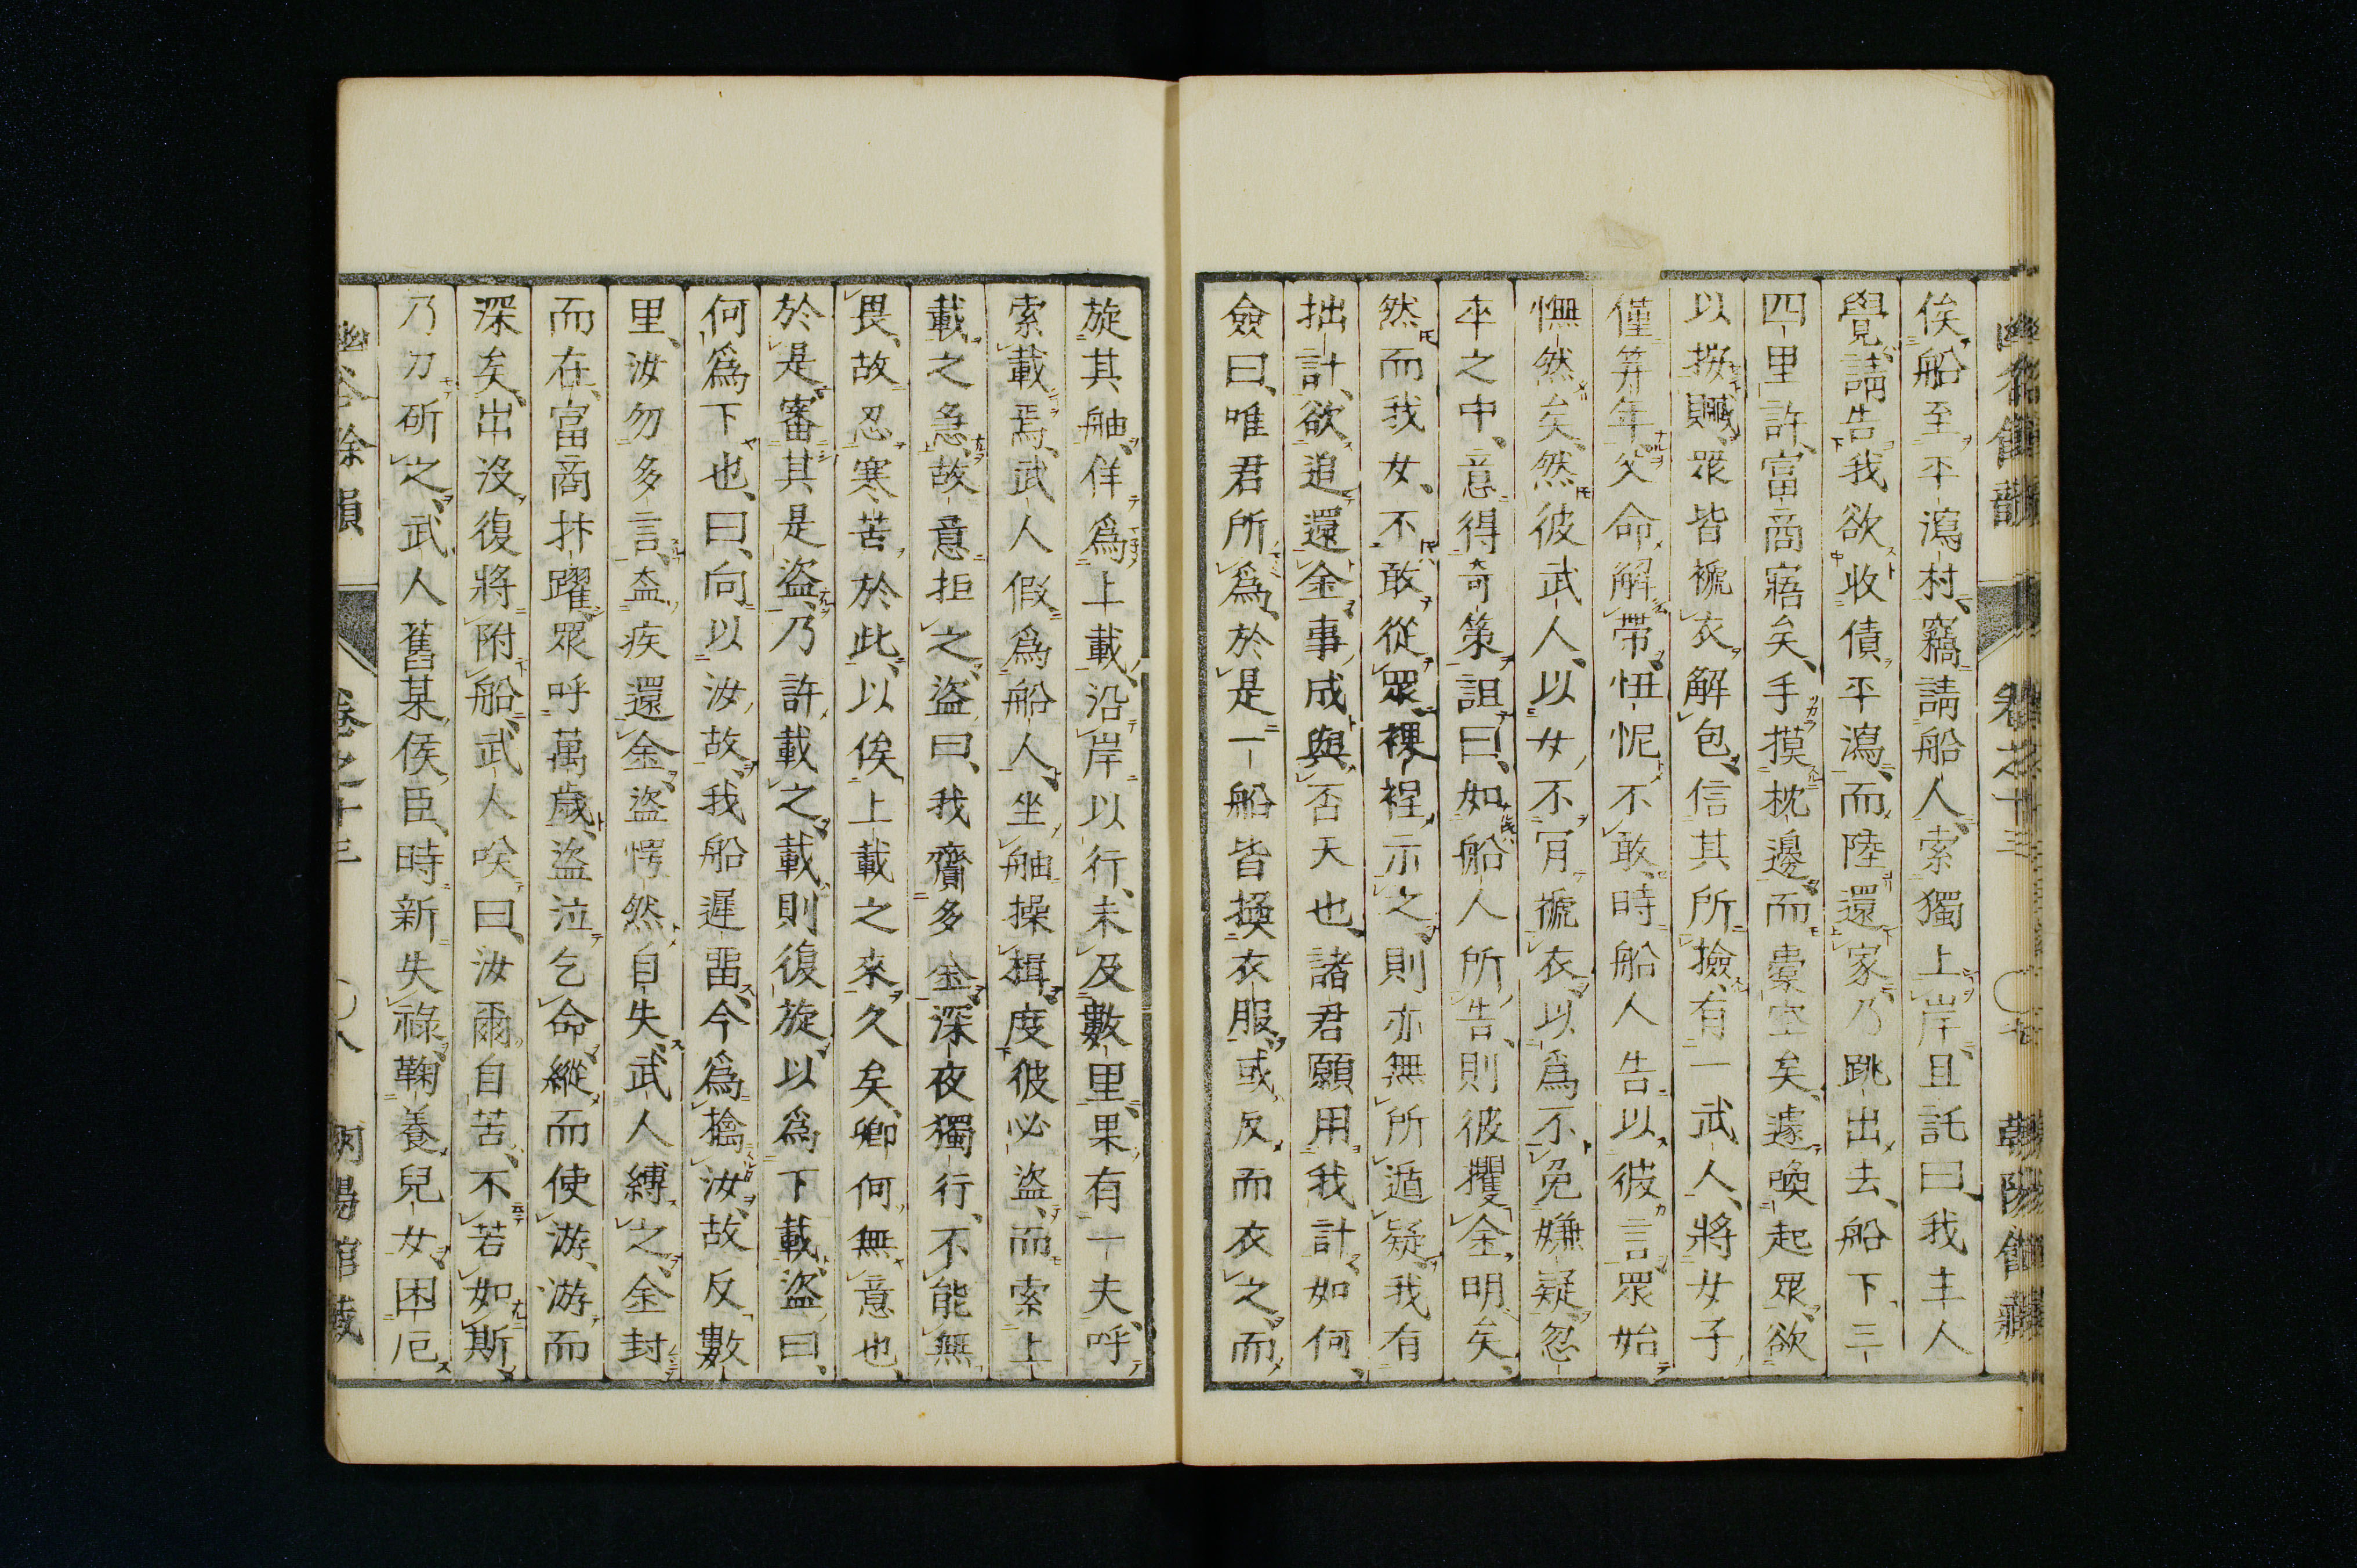 俟船至平瀉村、竊請船人、索獨上岸、且託曰、我主人
覺、請告我欲收債平瀉、而陸還家、乃跳出去、船下三
四里許、富商寤矣、手摸枕邊、而橐空矣、遽喚起眾、欲
以按贓、眾皆褫衣解包、信其所撿、有一武人、將女子
僅笄年、父命解帶、忸怩不敢、時船人告以彼言、眾始
憮然矣、然彼武人、以女不肯褫衣、以爲不免嫌疑、忽
卒之中、意得奇策、詛曰、如船人所告、則彼攫金明矣、
然而我女、不敢從眾裸裎示之、則亦無所遁疑、我有
拙計、欲追還金、事成與否天也、諸君願用我計如何、
僉曰、唯君所爲、於是一船皆換衣服、或反而衣之、而
旋其舳、佯爲上載、沿岸以行、未及數里、果有一夫、呼
索載焉、武人假爲船人、坐舳操楫、度彼必盜、而索上
載之急、故意拒之、盜曰、我齎多金、深夜獨行、不能無
畏、故忍寒苦於此、以俟上載之來久矣、卿何無意也、
於是審其是盜、乃許載之、載則復旋、以爲下載、盜曰、
何爲下也、曰、向以汝故、我船遲畱、今爲擒汝、故反數
里、汝勿多言、盍疾還金、盜愕然自失、武人縛之、金封
而在、富商抃躍、眾呼萬歲、盜泣乞命、縱而使游、游而
深矣、出沒復將附船、武人唉曰、汝爾自苦、不若如斯、
乃刀斫之、武人舊某侯臣、時新失祿、鞠養兒女、困厄
幽谷餘韻 卷之十三 〇八 朝陽館藏